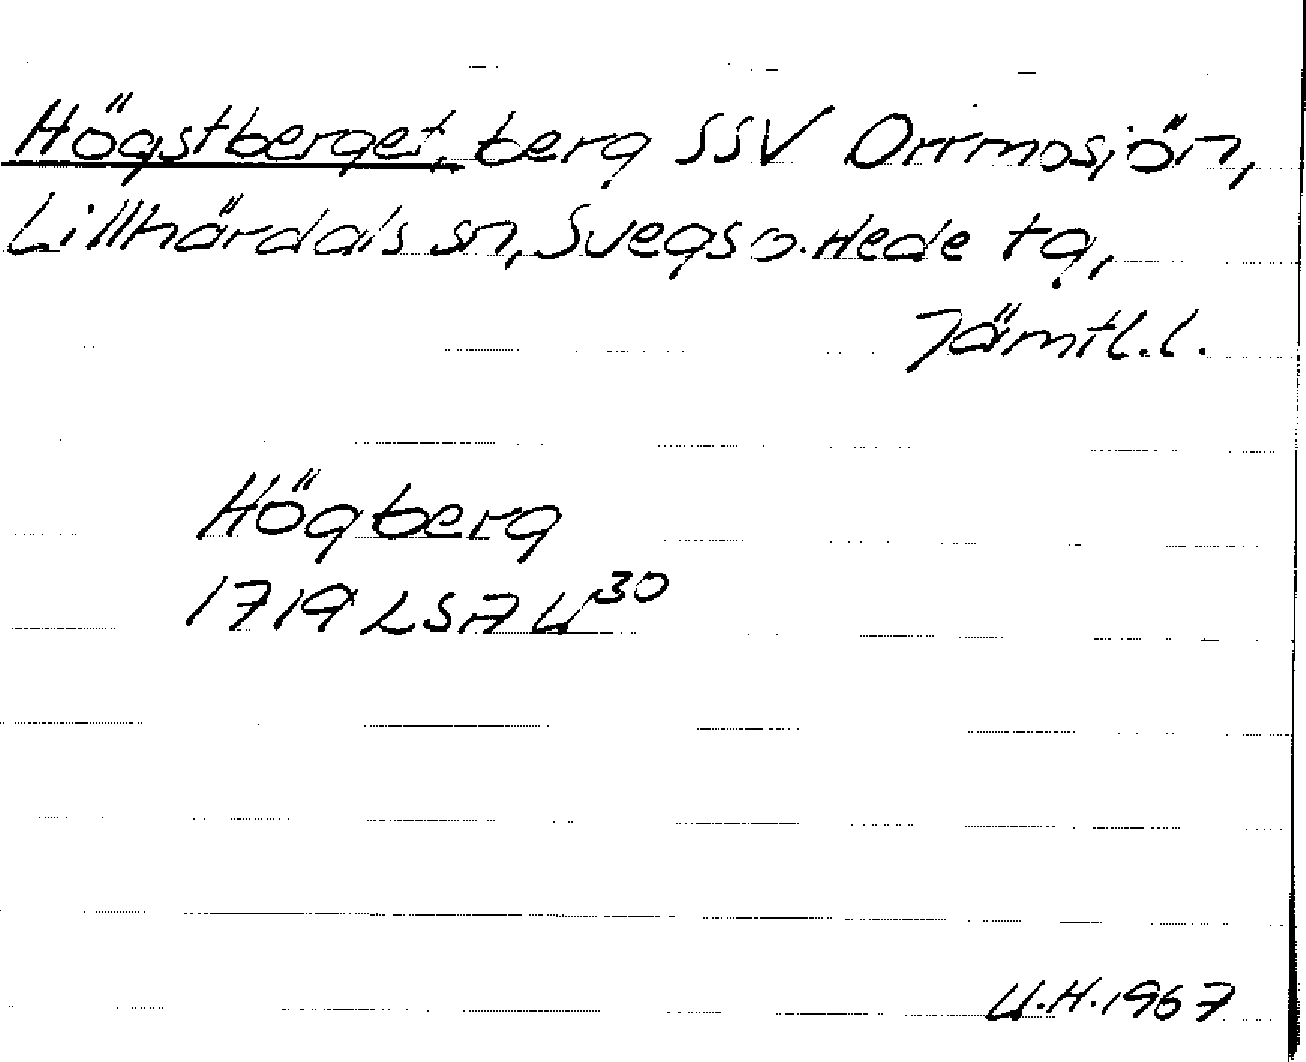 Högstberget, berg SSV Orrmosjön,
Lillhärdals sn, Svegs o. Hede tg,
Jämtl.l.
Högberg
1719 LSA U30
U.H. 1967